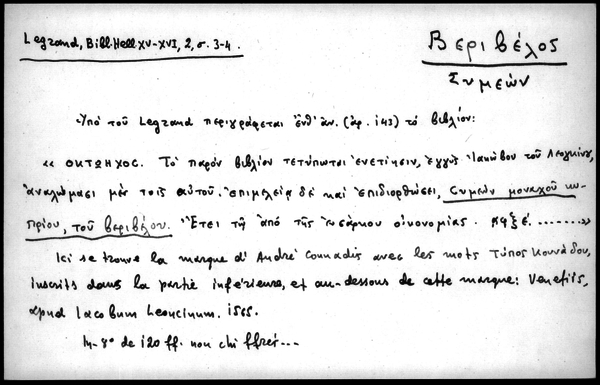 Legrand, Bibl. Hell XV-XVI, 2, σ. 3-4.
Βεριβέλος
Συμεών
Ὑπὸ τοῦ Legrand περιγράφεται ἐνθ' ἀν. (ἀρ. 143) τὸ βιβλίον:
« ΟΚΤΩΗΧΟC. Τὸ παρὸν βιβλίον τετύπωται ἐνετίησιν, ἐγγὺς Ἰακώβου τοῦ Λεογκίνου,
ἀναλώμασι μὲν τοῖς αὐτοῦ. ἐπιμελείᾳ δὲ καὶ ἐπιδιορθώσει, Συμεὼν μοναχοῦ κυ-
πρίου, τοῦ βεριβέλου. Ἔτει τῷ ἀπὸ τῆς ἐνσάρκου οἰκονομίας. αφξέ. ........»
Ici se trouve la marque d'André Counadis avec les mots Τύπος Κουνάδου,
inscrits dans la partie inférieure, et au-dessous de cette marque: Venetiis,
apud Iacobum Leoncinum. 1565.
In-8° de 120 ff. non chiffrés...